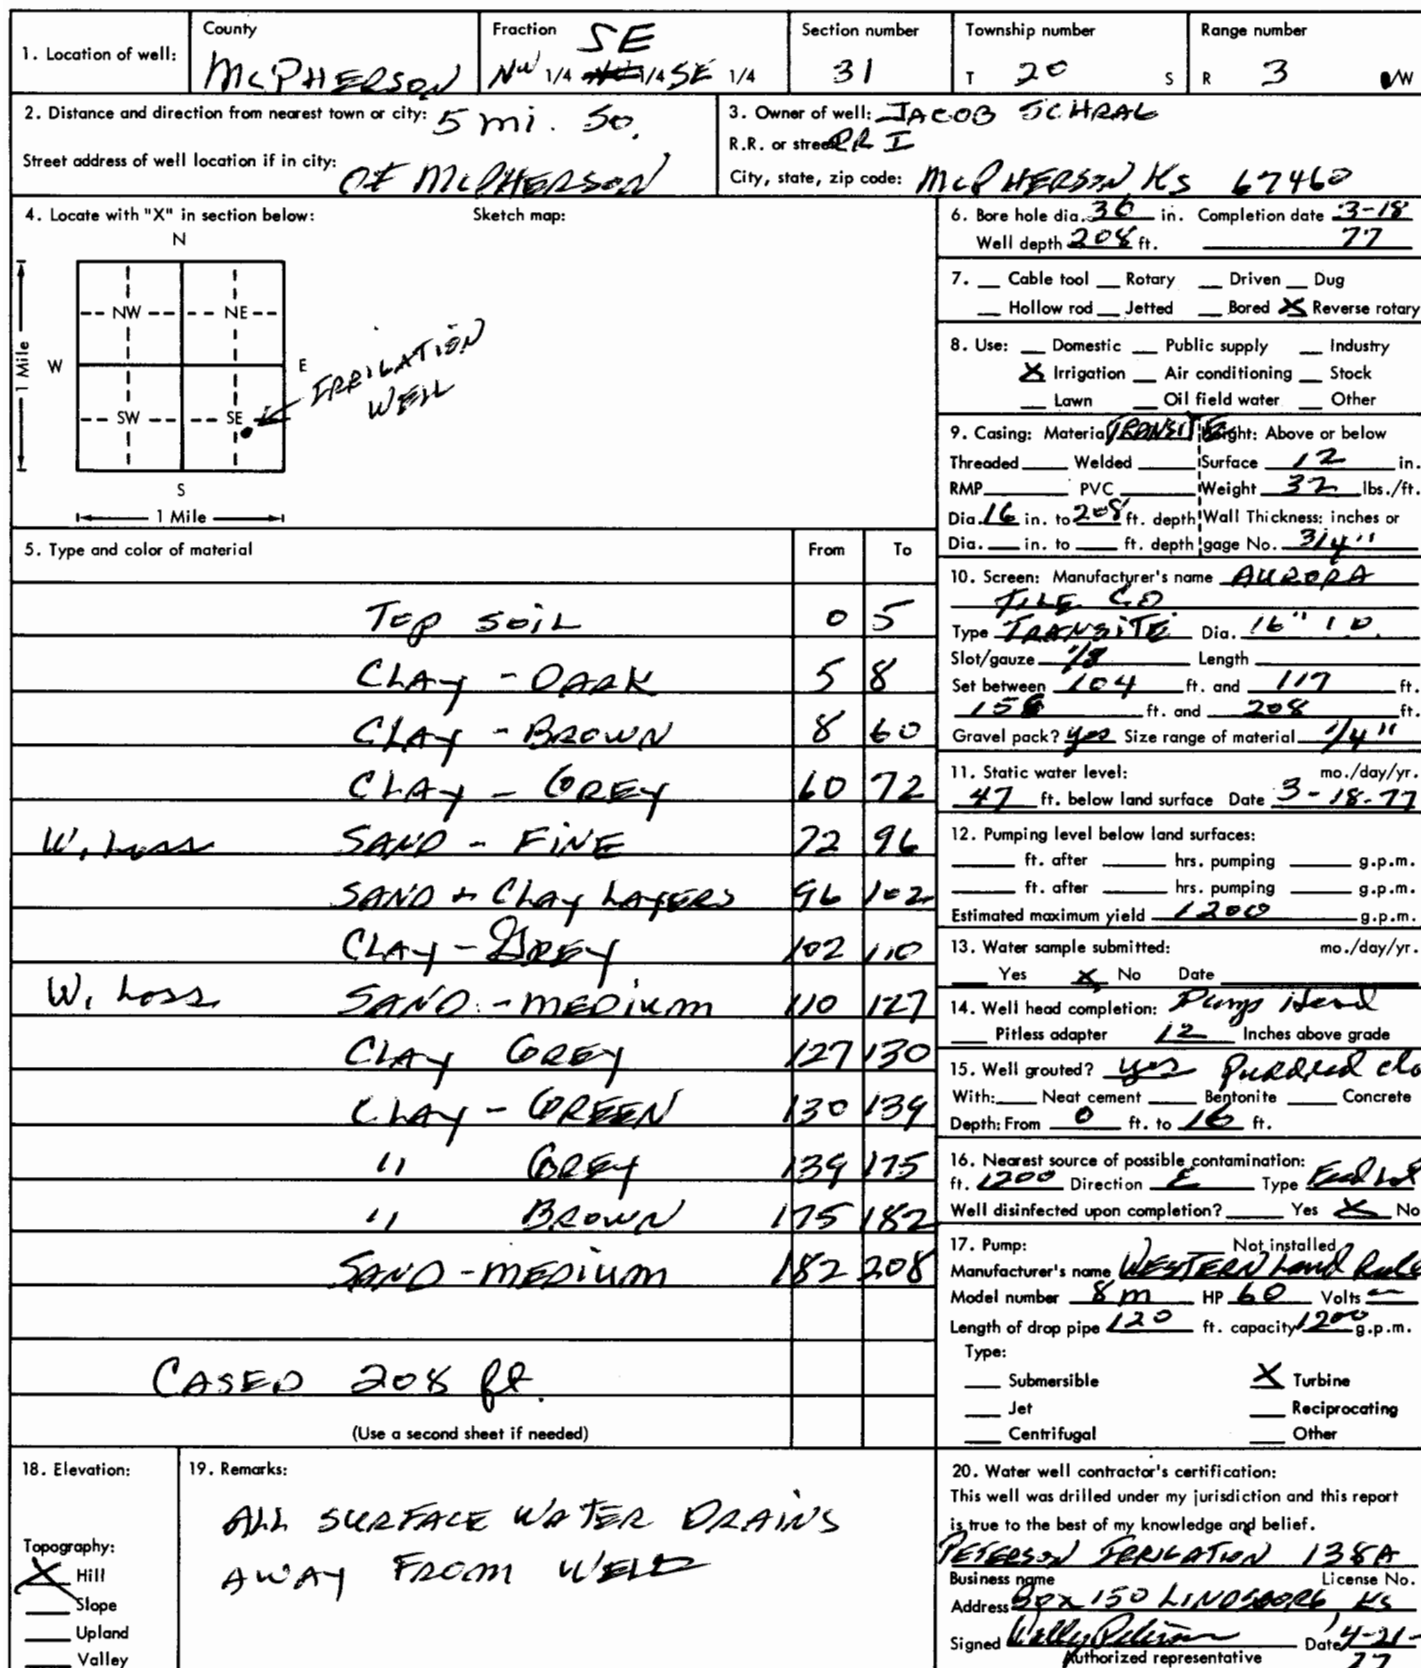 1. Location of well: County McPHERSON Fraction NW 1/4 SE 1/4 SE 1/4 Section number 31 Township number T 20 S Range number R 3 E/W
2. Distance and direction from nearest town or city: 5 mi. So.
Street address of well location if in city: OF McPHERSON
3. Owner of well: JACOB SCHRAG
R.R. or street RR I
City, state, zip code: McPHERSON Ks 67460
4. Locate with "X" in section below: Sketch map:
N
NW NE
W E
SW SE
S
1 Mile
1 Mile
IRRIGATION
WELL
5. Type and color of material From To
Top soil 0 5
CLAY - DARK 5 8
CLAY - BROWN 8 60
CLAY - GREY 60 72
W. Loss SAND - FINE 72 96
SAND + CLAY LAYERS 96 102
CLAY - GREY 102 110
W. Loss SAND - MEDIUM 110 127
CLAY GREY 127 130
CLAY - GREEN 130 139
" GREY 139 175
" BROWN 175 182
SAND - MEDIUM 182 208
CASED 208 ft.
(Use a second sheet if needed)
6. Bore hole dia. 30 in. Completion date 3-18
Well depth 208 ft. 77
7. Cable tool Rotary Driven Dug
Hollow rod Jetted Bored X Reverse rotary
8. Use: Domestic Public supply Industry
X Irrigation Air conditioning Stock
Lawn Oil field water Other
9. Casing: Material TRANSITE Height: Above or below
Threaded Welded Surface 12 in.
RMP PVC Weight 32 lbs./ft.
Dia. 16 in. to 208 ft. depth Wall Thickness: inches or
Dia. in. to ft. depth gage No. 3/4"
10. Screen: Manufacturer's name AURORA
TILE CO
Type TRANSITE Dia. 16" I D.
Slot/gauze 1/8 Length
Set between 104 ft. and 117 ft.
156 ft. and 208 ft.
Gravel pack? yes Size range of material 1/4"
11. Static water level: mo./day/yr.
47 ft. below land surface Date 3-18-77
12. Pumping level below land surfaces:
ft. after hrs. pumping g.p.m.
ft. after hrs. pumping g.p.m.
Estimated maximum yield 1200 g.p.m.
13. Water sample submitted: mo./day/yr.
Yes X No Date
14. Well head completion: Pump Head
Pitless adapter 12 Inches above grade
15. Well grouted? yes Puddled cla
With: Neat cement Bentonite Concrete
Depth: From 0 ft. to 10 ft.
16. Nearest source of possible contamination:
ft. 1200 Direction E Type Feed Lot
Well disinfected upon completion? Yes X No
17. Pump: Not installed
Manufacturer's name WESTERN Land Rolle
Model number 8 m HP 60 Volts —
Length of drop pipe 120 ft. capacity 1200 g.p.m.
Type:
Submersible X Turbine
Jet Reciprocating
Centrifugal Other
18. Elevation:
Topography:
X Hill
Slope
Upland
Valley
19. Remarks:
ALL SURFACE WATER DRAINS
AWAY FROM WELL
20. Water well contractor's certification:
This well was drilled under my jurisdiction and this report
is true to the best of my knowledge and belief.
PETERSON IRRIGATION 138A
Business name License No.
Address Box 150 LINDSBORG Ks
Signed Wally Peterson Date 4-21-
Authorized representative 77